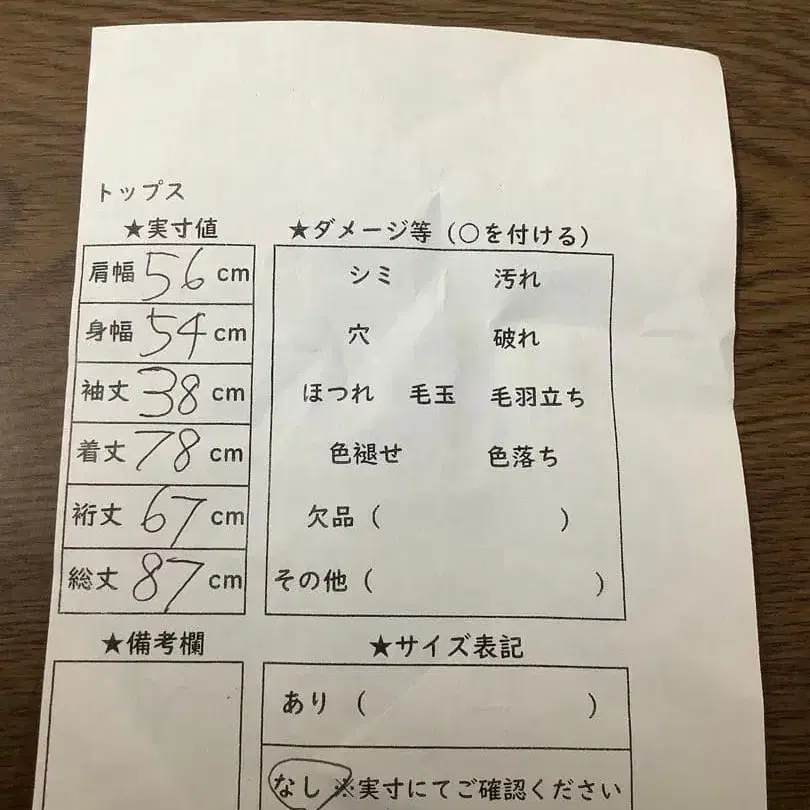 トップス
★実寸値
肩幅 56 cm
身幅 54 cm
袖丈 38 cm
着丈 78 cm
裄丈 67 cm
総丈 87 cm
★ダメージ等（○を付ける）
シミ 汚れ
穴 破れ
ほつれ 毛玉 毛羽立ち
色褪せ 色落ち
欠品（ ）
その他（ ）
★備考欄
★サイズ表記
あり（ ）
なし ※実寸にてご確認ください